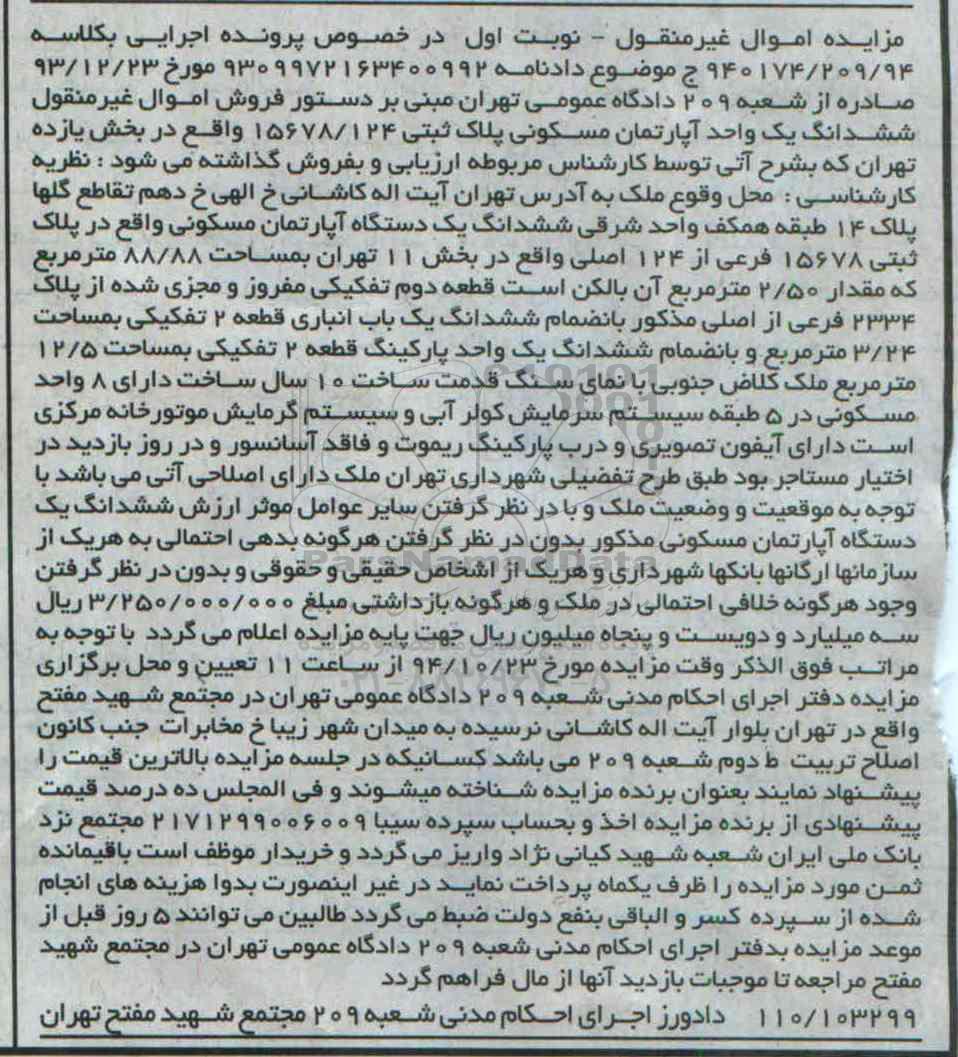 مزایده اموال غیرمنقول - نوبت اول در خصوص پرونده اجرایی بکلاسه
۹۴۰۱۷۴/۲۰۹/۹۴ ج موضوع دادنامه ۹۳۰۹۹۷۲۱۶۳۴۰۰۹۹۲ مورخ ۹۳/۱۲/۲۳
صادره از شعبه ۲۰۹ دادگاه عمومی تهران مبنی بر دستور فروش اموال غیرمنقول
ششدانگ یک واحد آپارتمان مسکونی پلاک ثبتی ۱۵۶۷۸/۱۲۴ واقع در بخش یازده
تهران که بشرح آتی توسط کارشناس مربوطه ارزیابی و بفروش گذاشته می شود : نظریه
کارشناسی : محل وقوع ملک به آدرس تهران آیت اله کاشانی خ الهی خ دهم تقاطع گلها
پلاک ۱۴ طبقه همکف واحد شرقی ششدانگ یک دستگاه آپارتمان مسکونی واقع در پلاک
ثبتی ۱۵۶۷۸ فرعی از ۱۲۴ اصلی واقع در بخش ۱۱ تهران بمساحت ۸۸/۸۸ مترمربع
که مقدار ۲/۵۰ مترمربع آن بالکن است قطعه دوم تفکیکی مفروز و مجزی شده از پلاک
۲۳۳۴ فرعی از اصلی مذکور بانضمام ششدانگ یک باب انباری قطعه ۲ تفکیکی بمساحت
۳/۲۴ مترمربع و بانضمام ششدانگ یک واحد پارکینگ قطعه ۲ تفکیکی بمساحت ۱۲/۵
مترمربع ملک کلاض جنوبی با نمای سنگ قدمت ساخت ۱۰ سال ساخت دارای ۸ واحد
مسکونی در ۵ طبقه سیستم سرمایش کولر آبی و سیستم گرمایش موتورخانه مرکزی
است دارای آیفون تصویری و درب پارکینگ ریموت و فاقد آسانسور و در روز بازدید در
اختیار مستاجر بود طبق طرح تفضیلی شهرداری تهران ملک دارای اصلاحی آتی می باشد با
توجه به موقعیت و وضعیت ملک و با در نظر گرفتن سایر عوامل موثر ارزش ششدانگ یک
دستگاه آپارتمان مسکونی مذکور بدون در نظر گرفتن هرگونه بدهی احتمالی به هریک از
سازمانها ارگانها بانکها شهرداری و هریک از اشخاص حقیقی و حقوقی و بدون در نظر گرفتن
وجود هرگونه خلافی احتمالی در ملک و هرگونه بازداشتی مبلغ ۳/۲۵۰/۰۰۰/۰۰۰ ریال
سه میلیارد و دویست و پنجاه میلیون ریال جهت پایه مزایده اعلام می گردد با توجه به
مراتب فوق الذکر وقت مزایده مورخ ۹۴/۱۰/۲۳ از ساعت ۱۱ تعیین و محل برگزاری
مزایده دفتر اجرای احکام مدنی شعبه ۲۰۹ دادگاه عمومی تهران در مجتمع شهید مفتح
واقع در تهران بلوار آیت اله کاشانی نرسیده به میدان شهر زیبا خ مخابرات جنب کانون
اصلاح تربیت ط دوم شعبه ۲۰۹ می باشد کسانیکه در جلسه مزایده بالاترین قیمت را
پیشنهاد نمایند بعنوان برنده مزایده شناخته میشوند و فی المجلس ده درصد قیمت
پیشنهادی از برنده مزایده اخذ و بحساب سپرده سیبا ۲۱۷۱۲۹۹۰۰۶۰۰۹ مجتمع نزد
بانک ملی ایران شعبه شهید کیانی نژاد واریز می گردد و خریدار موظف است باقیمانده
ثمن مورد مزایده را ظرف یکماه پرداخت نماید در غیر اینصورت بدوا هزینه های انجام
شده از سپرده کسر و الباقی بنفع دولت ضبط می گردد طالبین می توانند ۵ روز قبل از
موعد مزایده بدفتر اجرای احکام مدنی شعبه ۲۰۹ دادگاه عمومی تهران در مجتمع شهید
مفتح مراجعه تا موجبات بازدید آنها از مال فراهم گردد
۱۱۰/۱۰۳۲۹۹ دادورز اجرای احکام مدنی شعبه ۲۰۹ مجتمع شهید مفتح تهران
ParsNamadData